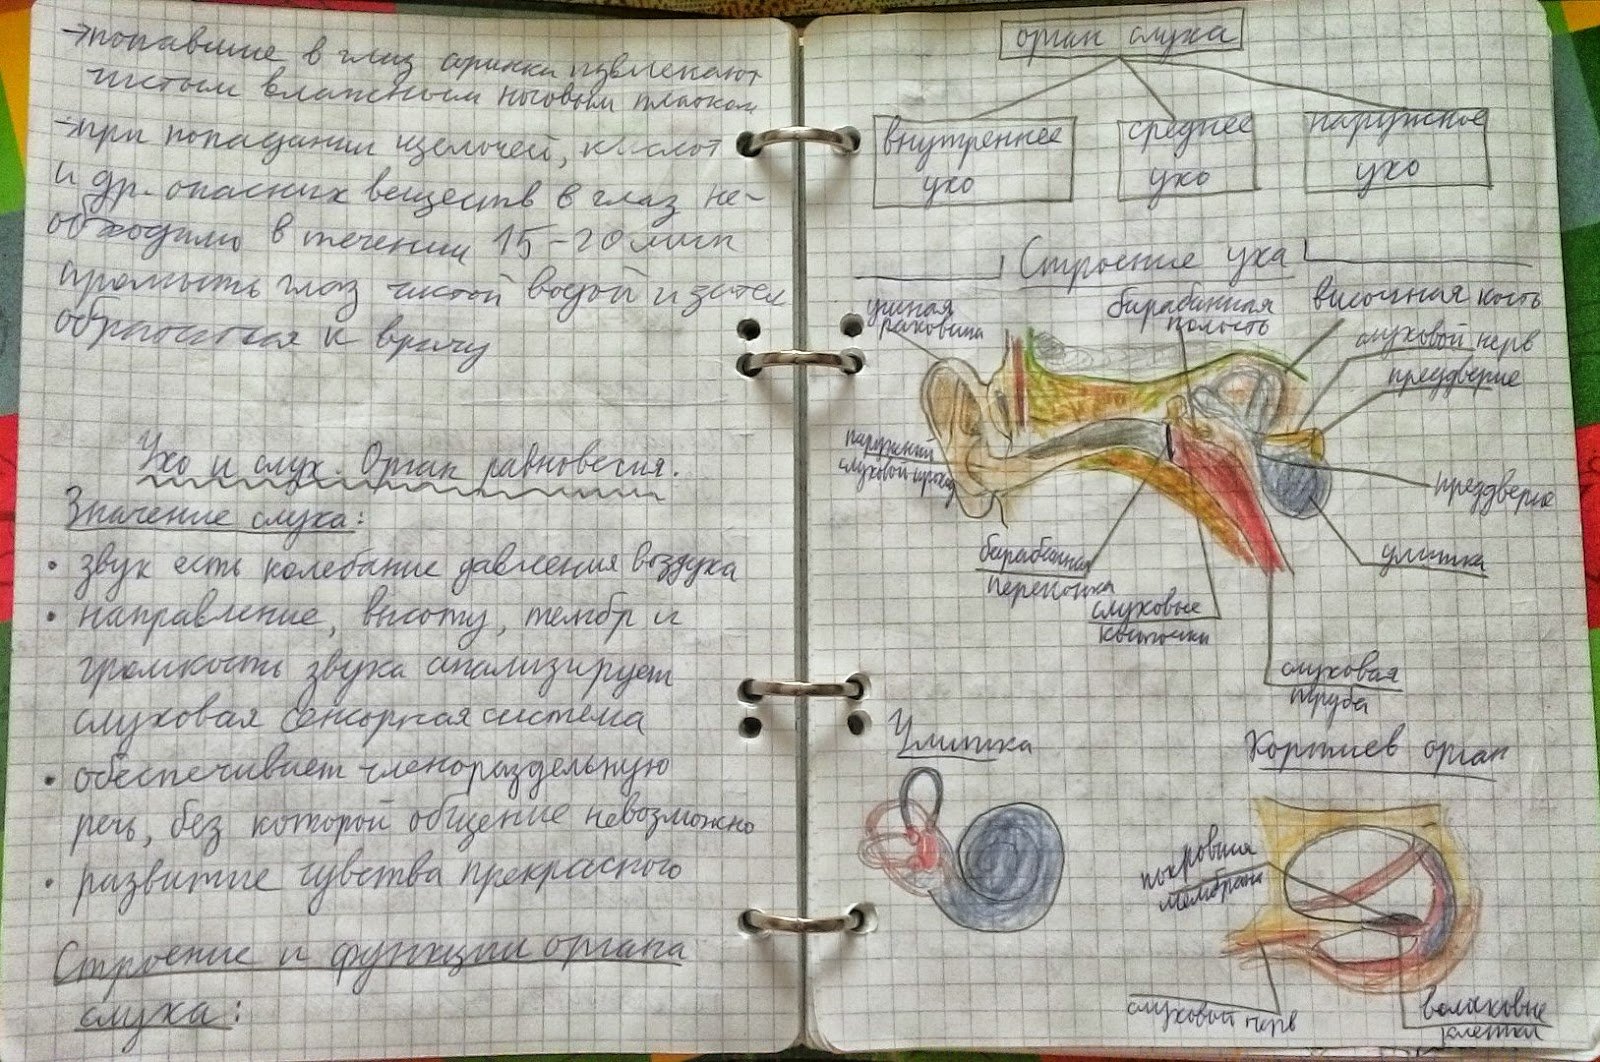 →попавшие в глаз соринки извлекают
чистым влажным носовым платком
→при попадании щелочей, кислот
и др. опасных веществ в глаз не-
обходимо в течении 15-20 мин
промыть глаз чистой водой и затем
обратиться к врачу
Ухо и слух. Орган равновесия.
Значение слуха:
• звук есть колебание давления воздуха
• направление, высоту, тембр и
громкость звука анализирует
слуховая сенсорная система
• обеспечивает членораздельную
речь, без которой общение невозможно
• развитие чувства прекрасного
Строение и функции органа
слуха:
орган слуха
внутреннее
ухо
среднее
ухо
наружное
ухо
Строение уха
ушная
раковина
барабанная
полость
височная кость
слуховой нерв
преддверие
наружный
слуховой проход
преддверие
улитка
барабанная
перепонка
слуховые
косточки
слуховая
труба
Улитка
Кортиев орган
покровная
мембрана
слуховой нерв
волосковые
клетки